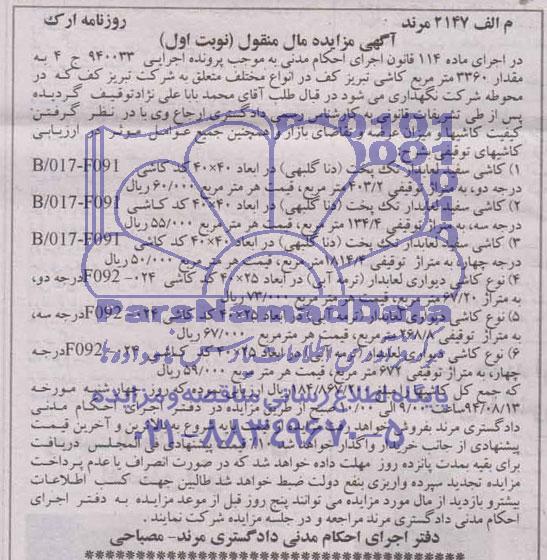 م الف ۲۱۴۷ مرند
روزنامه ارک
آگهی مزایده مال منقول (نوبت اول)
در اجرای ماده ۱۱۴ قانون اجرای احکام مدنی به موجب پرونده اجرایی ۹۴۰۰۳۳ ح ۴ به
مقدار ۳۳۶۰ متر مربع کاشی تبریز کف در انواع مختلف متعلق به شرکت تبریز کف که در
محوطه شرکت نگهداری می شود در قبال طلب آقای محمد بابا علی نژاد توقیف گردیده
پس از طی تشریفات قانونی به کارشناس رسمی دادگستری ارجاع وی با در نظر گرفتن
کیفیت کاشیها میزان عرضه و تقاضای بازار و همچنین جمیع عوامل موثر در ارزیابی
کاشیهای توقیفی بشرح
۱) کاشی سفید لعابدار تک پخت (دنا گلبهی) در ابعاد ۴۰×۴۰ کد کاشی B/017-F091
درجه دو، به متراژ توقیفی ۴۰۳/۲ متر مربع، قیمت هر متر مربع ۶۰/۰۰۰ ریال
۲) کاشی سفید لعابدار تک پخت (دنا گلبهی) در ابعاد ۴۰×۴۰ کد کاشی B/017-F091
درجه سه، به متراژ توقیفی ۱۳۴/۴ متر مربع، قیمت هر متر مربع ۵۵/۰۰۰ ریال
۳) کاشی سفید لعابدار تک پخت (دنا گلبهی) در ابعاد ۴۰×۴۰ کد کاشی B/017-F091
درجه چهار، به متراژ توقیفی ۱۸۱۴/۴ متر مربع، قیمت هر متر مربع ۵۰/۰۰۰ ریال
۴) نوع کاشی دیواری لعابدار (ترمه آبی) در ابعاد ۲۵×۴۰ کد کاشی ۰۲۴-F092 درجه دو،
به متراژ ۶۷/۲۰ متر مربع، قیمت هر متر مربع ۷۳/۰۰۰ ریال
۵) نوع کاشی دیواری لعابدار (ترمه آبی) در ابعاد ۲۵×۴۰ کد کاشی ۰۲۴-F092 درجه سه،
به متراژ توقیفی ۲۶۸/۸ مترمربع، قیمت هر مترمربع ۶۷/۰۰۰ ریال
۶) نوع کاشی دیواری لعابدار (ترمه آبی) در ابعاد ۲۵×۴۰ کد کاشی ۰۲۴-F092 درجه
چهار، به متراژ توقیفی ۶۷۲ متر مربع، قیمت هر متر مربع ۵۹/۰۰۰ ریال
که جمع کل کاشیها بمبلغ ۱۸۴/۸۶۷/۲۰۰ ریال ارزیابی نموده که روز چهارشنبه مورخه
۹۴/۰۸/۱۳ ساعت ۹/۰۰ الی ۱۰/۰۰ صبح از طریق مزایده در دفتر اجرای احکام مدنی
دادگستری مرند بفروش خواهد رسید مزایده از قیمت پایه شروع به بالاترین و آخرین قیمت
پیشنهادی از جانب خریدار واگذار خواهد شد ۱۰٪ قیمت پیشنهادی فی المجلس دریافت
برای بقیه بمدت پانزده روز مهلت داده خواهد شد که در صورت انصراف یا عدم پرداخت
مزایده تجدید سپرده واریزی بنفع دولت ضبط خواهد شد طالبین جهت کسب اطلاعات
بیشترو بازدید از مال مورد مزایده می توانند پنج روز قبل از موعد مزایده به دفتر اجرای
احکام مدنی دادگستری مرند مراجعه و در جلسه مزایده شرکت نمایند.
دفتر اجرای احکام مدنی دادگستری مرند- مصباحی
ParsNamadData
پایگاه اطلاع رسانی مناقصه و مزایده
۰۲۱-۸۸۳۴۹۶۷۰-۵